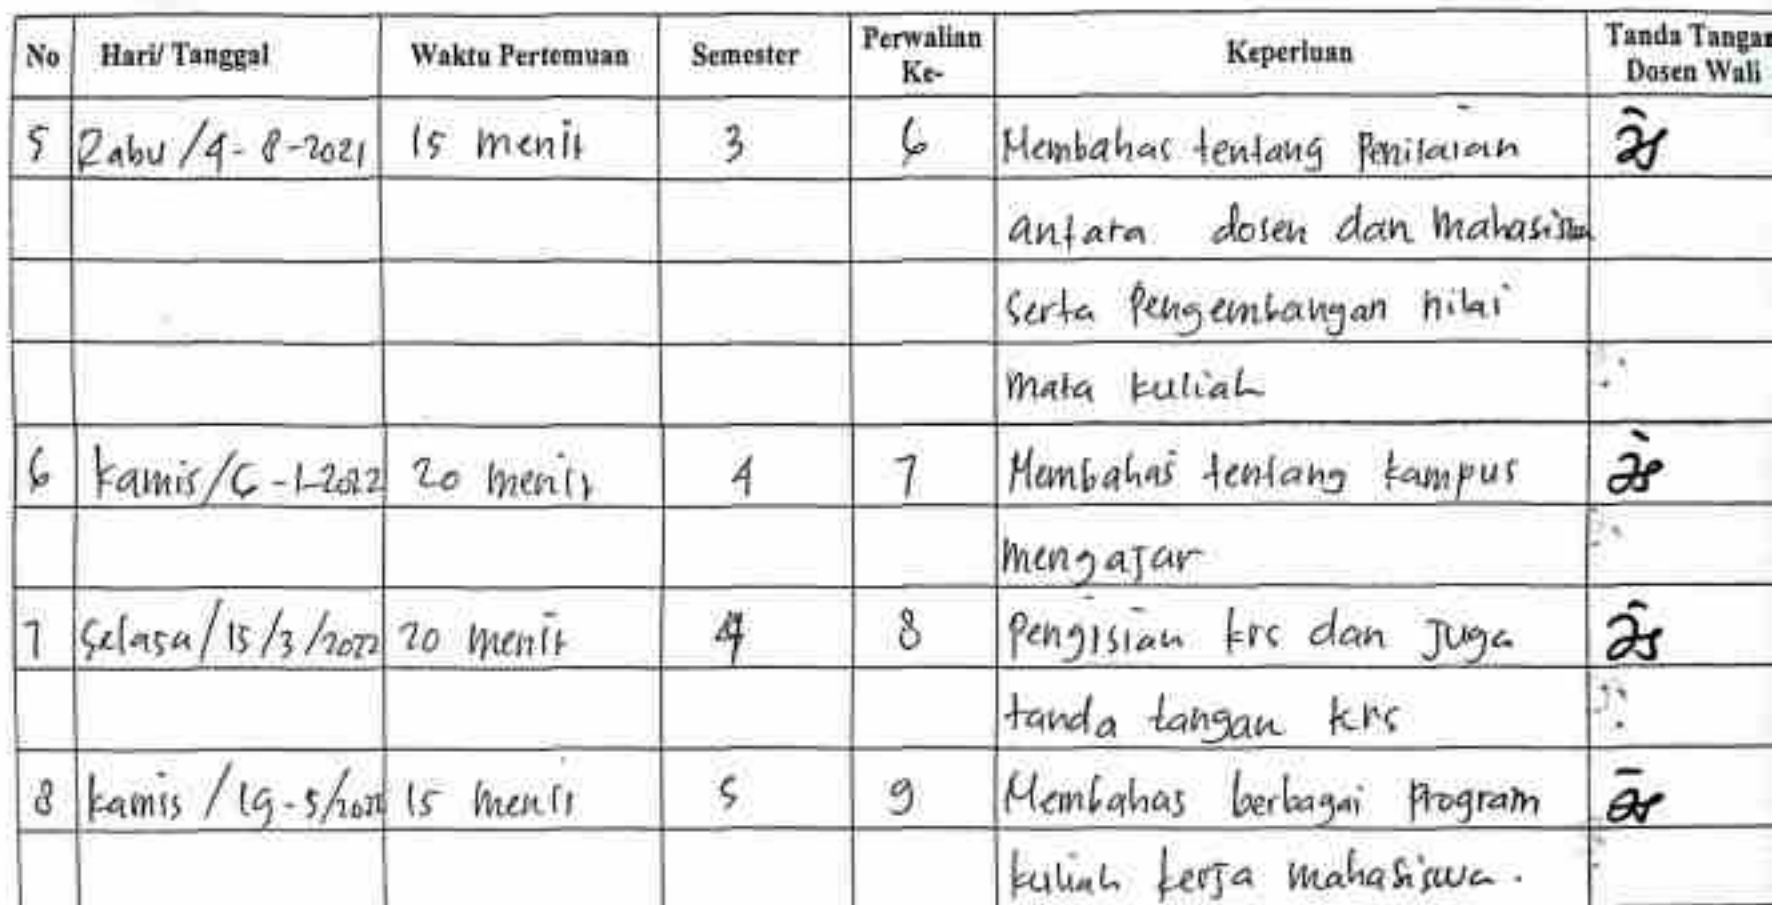 No Hari/ Tanggal Waktu Pertemuan Semester Perwalian Ke- Keperluan Tanda Tangan Dosen Wali
5 Rabu /4-8-2021 15 menit 3 6 Membahas tentang Penilaian
antara dosen dan mahasiswa
serta Pengembangan nilai
mata kuliah
6 kamis/6-1-2022 20 menit 4 7 Membahas tentang kampus
mengajar
7 Selasa/15/3/2022 20 menit 4 8 Pengisian krs dan Juga
tanda tangan krs
8 kamis / 19-5/2022 15 menit 5 9 Membahas berbagai Program
kuliah kerja mahasiswa.